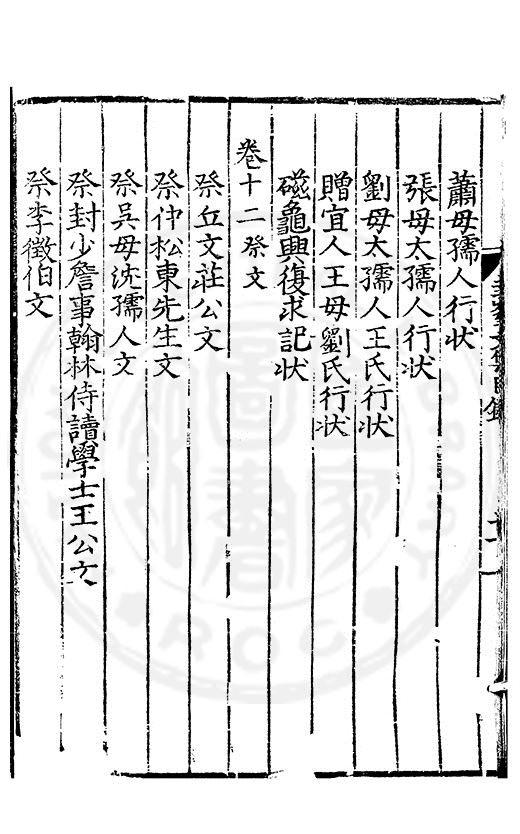 蕭母孺人行狀
張母太孺人行狀
劉母太孺人王氏行狀
贈宜人王母劉氏行狀
磁龜興復求記狀
卷十二祭文
祭丘文莊公文
祭仲松東先生文
祭吳母沈孺人文
祭封少詹事翰林侍讀學士王公文
祭李徵伯文